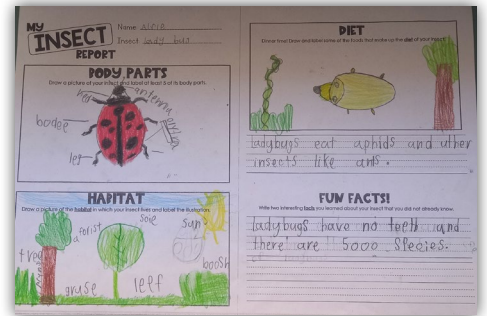 MY
INSECT
REPORT
Name
Insect lady bug
BODY PARTS
Draw a picture of your insect and label at least 5 of its body parts.
antenna
bodee
leg
HABITAT
Draw a picture of the habitat in which your insect lives and label the illustration.
a forist
sun
tree
gruse
leff
boosh
DIET
Dinner time! Draw and label some of the foods that make up the diet of your insect.
ladybugs eat aphids and uther
insects like ants.
FUN FACTS!
Write two interesting facts you learned about your insect that you did not already know.
ladybugs have no teeth and
there are 5000 species.